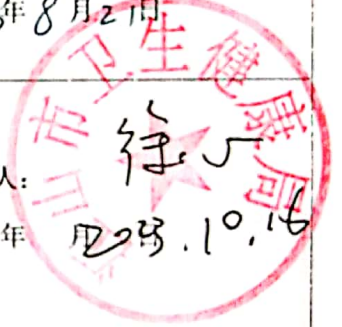 年8月21日
山市卫生健康局
徐
人:
年 月 2023.10.16